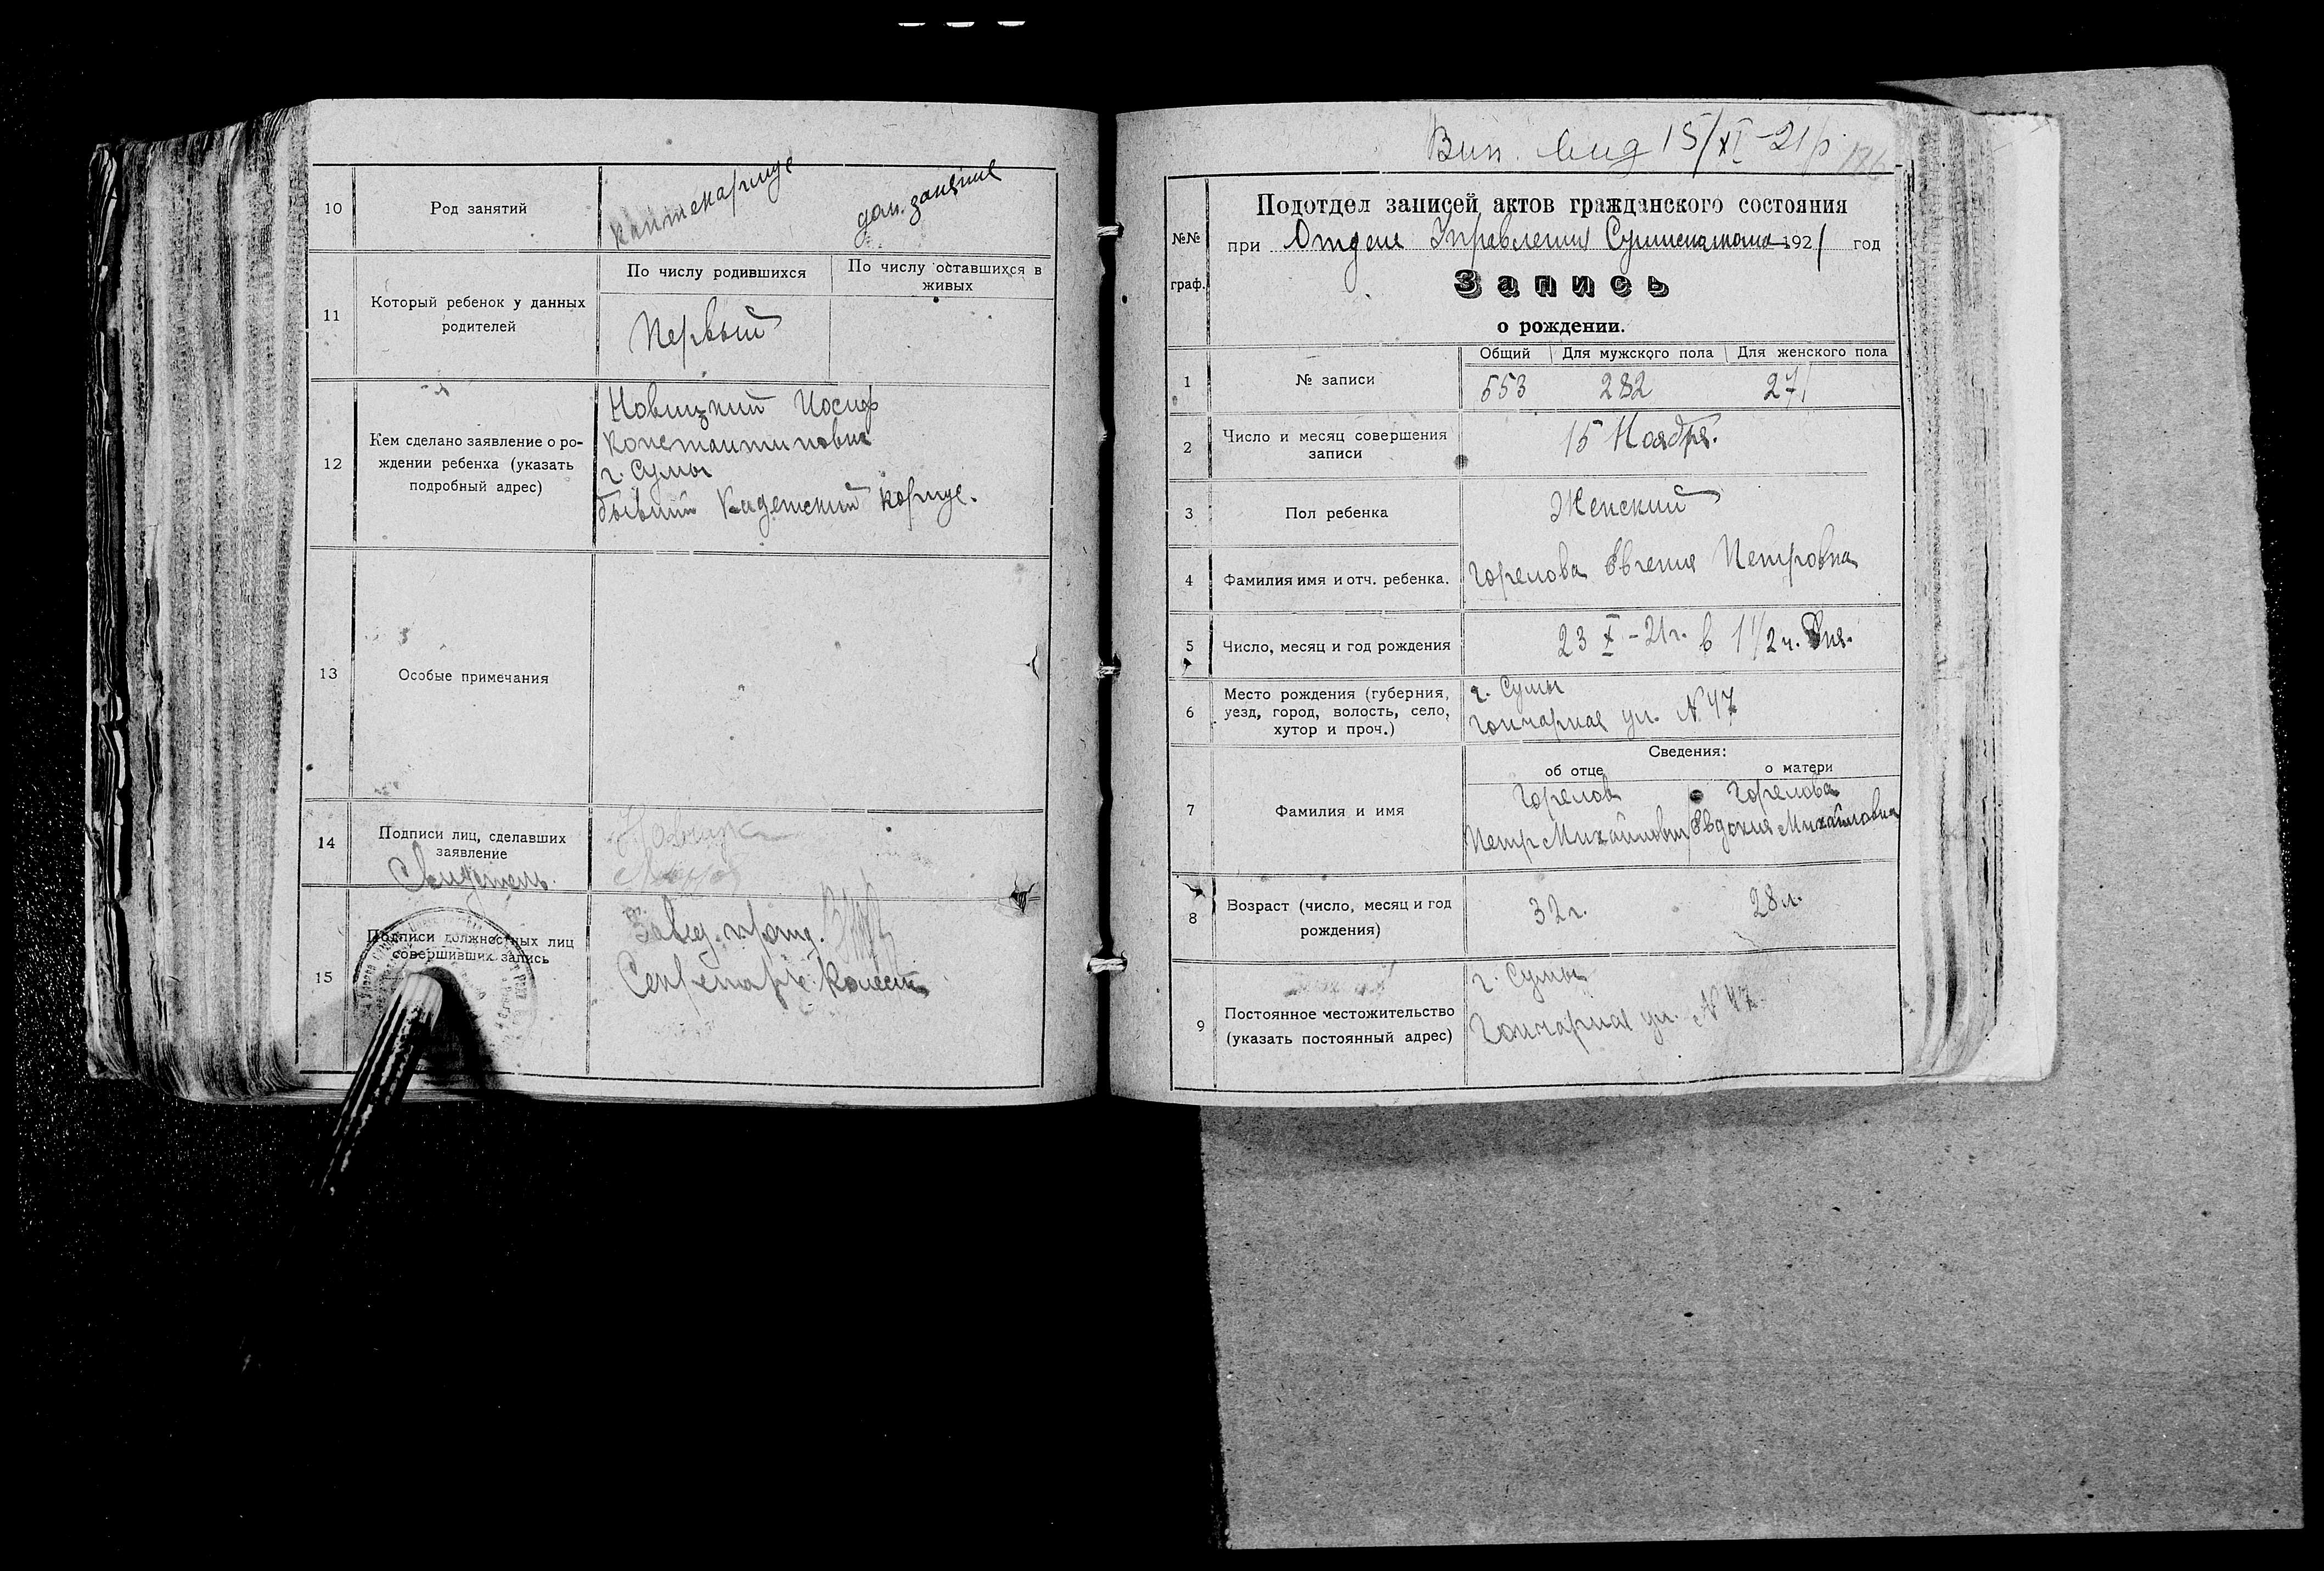 10
Род занятий
дом. занятие
11
Который ребенок у данных
родителей
По числу родившихся
По числу оставшихся в
живых
Первый
12
Кем сделано заявление о ро-
ждении ребенка (указать
подробный адрес)
Новицкий Иосиф
Константинович
г. Сумы
бывший Кадетский корпус.
13
Особые примечания
14
Подписи лиц, сделавших
заявление
Свидетель
15
Подписи должностных лиц
совершивших запись
Завед.
Секретарь
Вип. 15/XI-21р.
№№
граф.
Подотдел записей актов гражданского состояния
при Отделе Управления 1921 год
Запись
о рождении.
1
№ записи
Общий Для мужского пола Для женского пола
553 282 271
2
Число и месяц совершения
записи
15 Ноября.
3
Пол ребенка
Женский
4
Фамилия имя и отч. ребенка.
Горелова Евгения Петровна
5
Число, месяц и год рождения
23 X - 21 г. в 1 1/2 ч. Дня.
6
Место рождения (губерния,
уезд, город, волость, село,
хутор и проч.)
г. Сумы
Гончарная ул. № 47
7
Фамилия и имя
Сведения:
об отце
о матери
Горелов Горелова
Петр Михайлович Евдокия Михайловна
8
Возраст (число, месяц и год
рождения)
32 г. 28 л.
9
Постоянное местожительство
(указать постоянный адрес)
г. Сумы
Гончарная ул. № 47